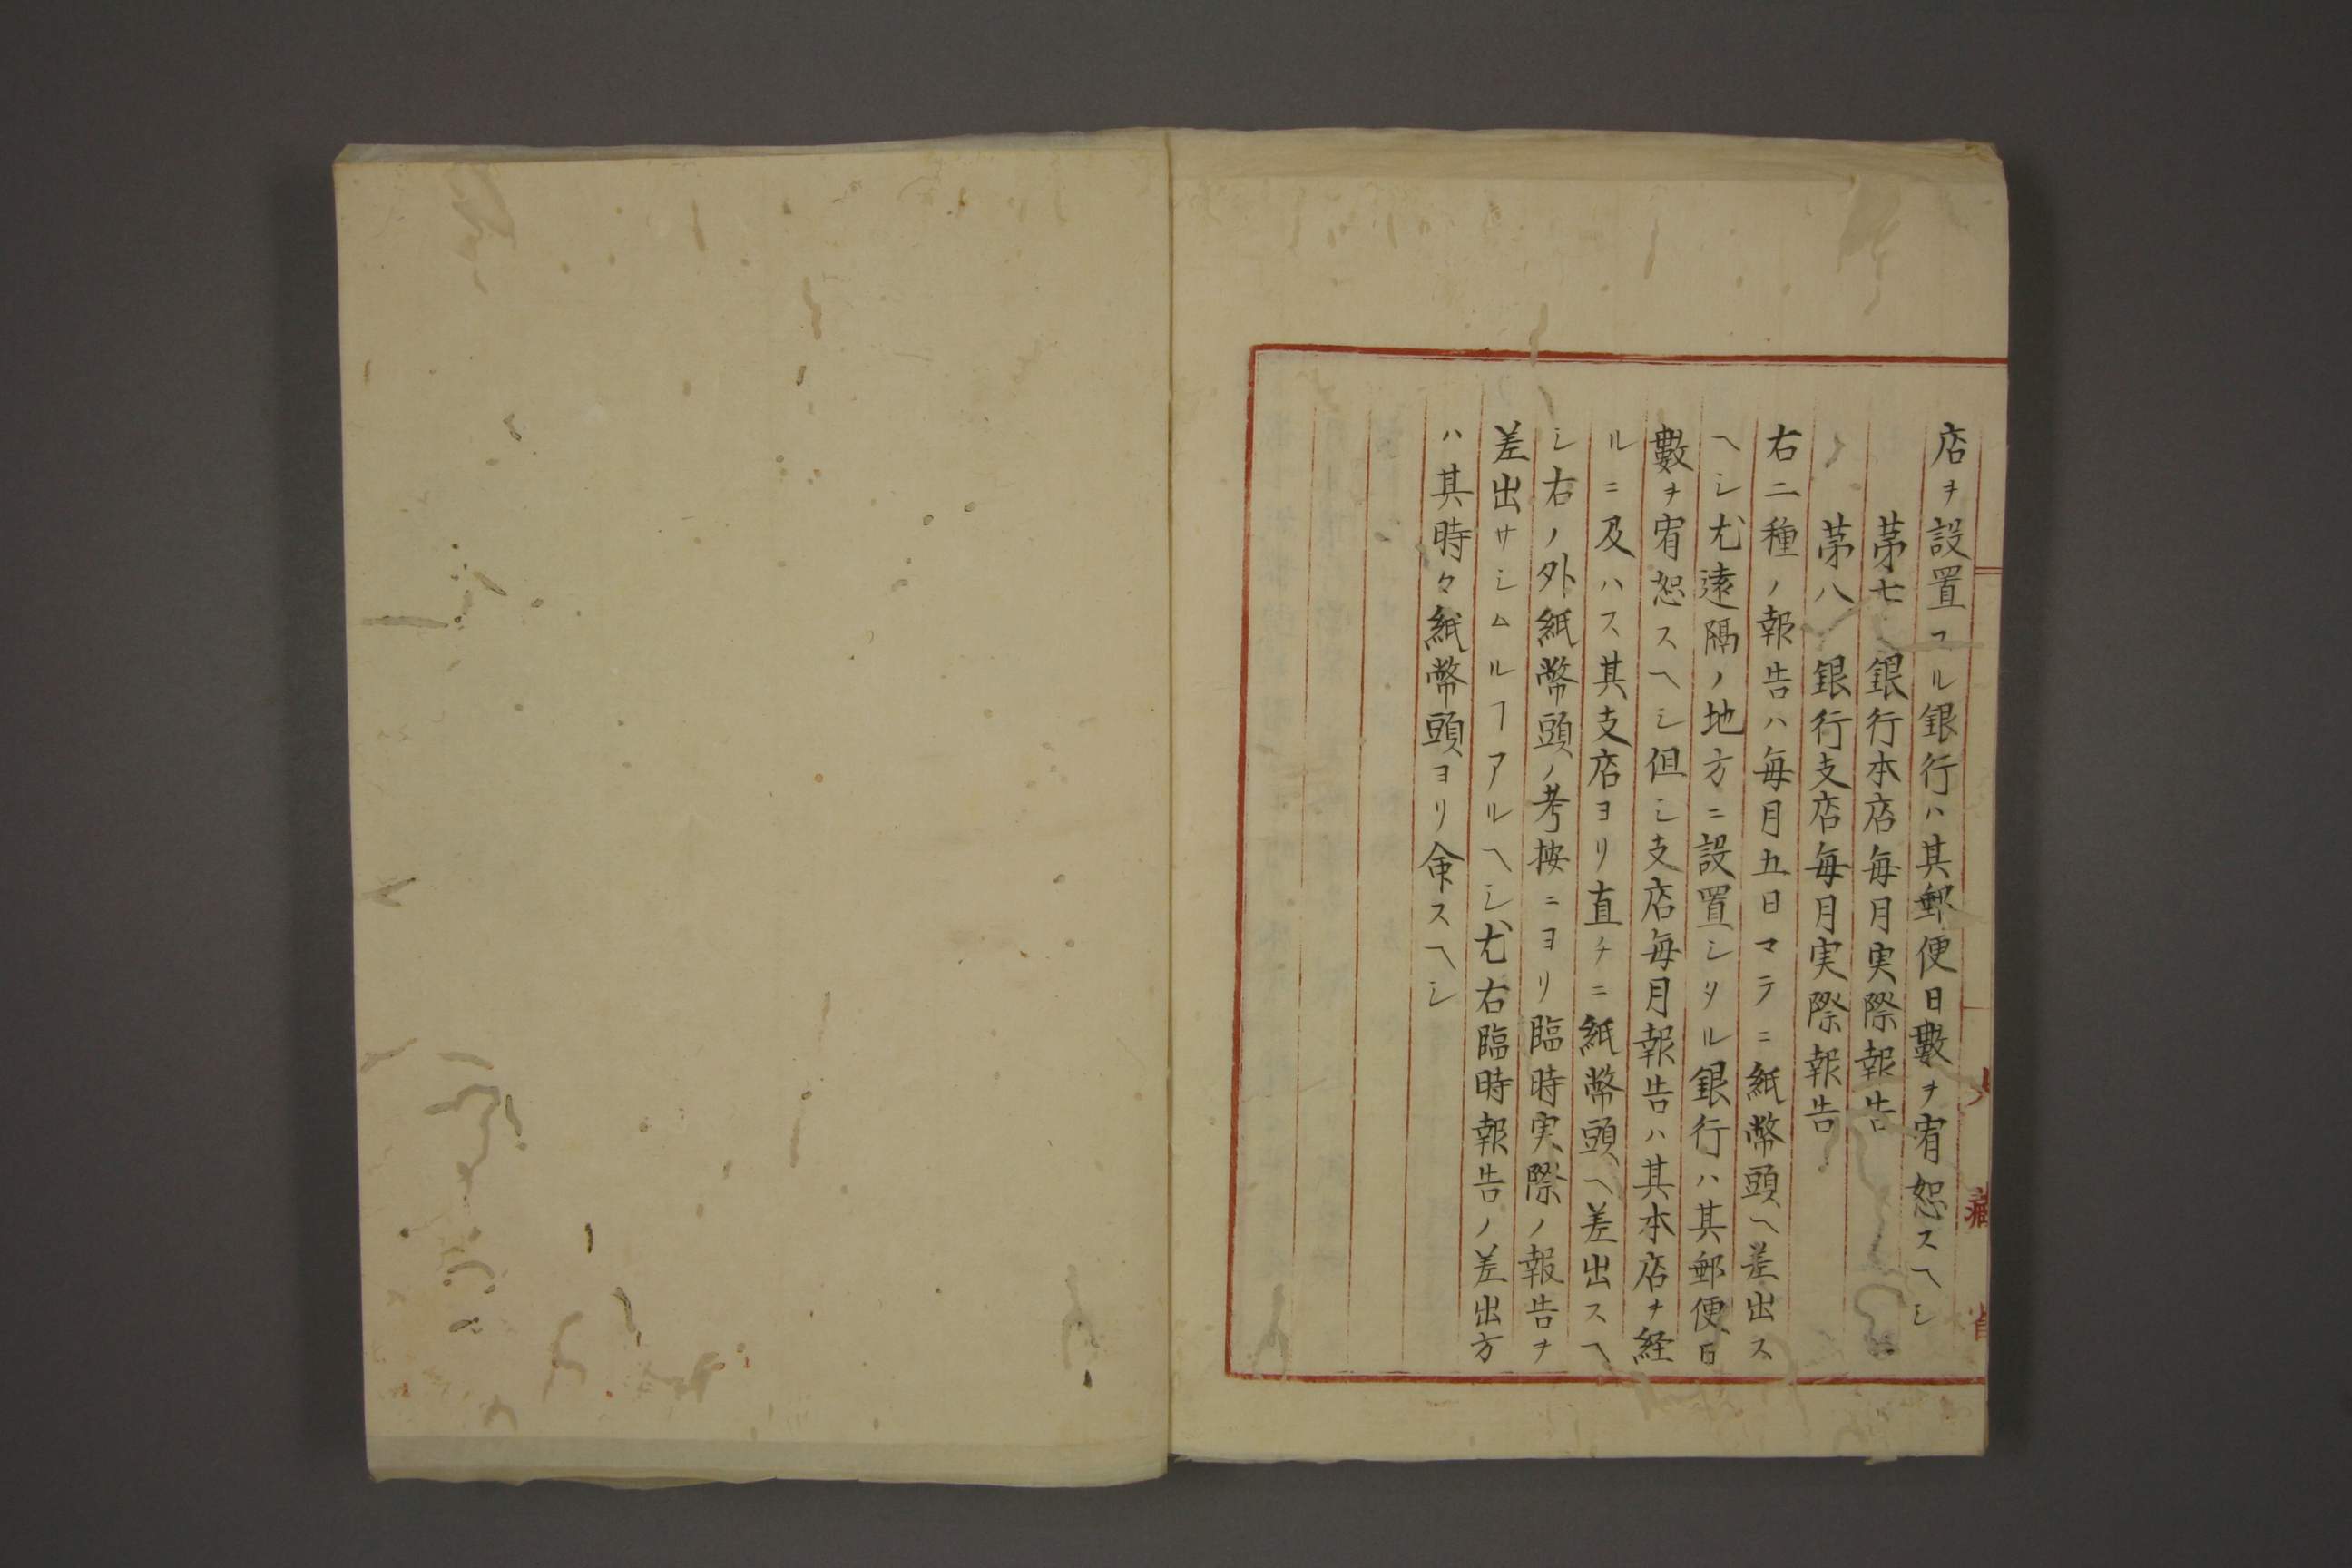 大藏省
店ヲ設置スル銀行ハ其郵便日數ヲ宥恕スヘシ
苐七 銀行本店毎月実際報告
苐八 銀行支店毎月実際報告
右二種ノ報告ハ毎月五日マテニ紙幣頭ヘ差出ス
ヘシ尤遠隔ノ地方ニ設置シタル銀行ハ其郵便日
數ヲ宥恕スヘシ但シ支店毎月報告ハ其本店ヲ経
ルニ及ハス其支店ヨリ直チニ紙幣頭ヘ差出スヘ
シ右ノ外紙幣頭ノ考按ニヨリ臨時実際ノ報告ヲ
差出サシムルヿアルヘシ尤右臨時報告ノ差出方
ハ其時々紙幣頭ヨリ命スヘシ